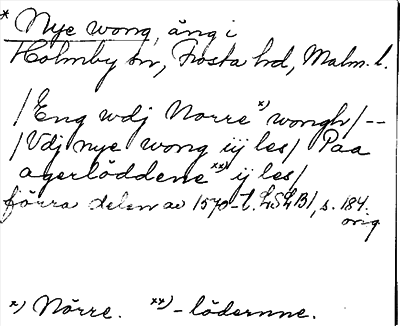 * Nye wong, äng i
Holmby sn, Frosta hd, Malm. l.
/Eng wdj Norre *) wongh/--
/Vdj nye wong iij les/ Paa
agerlöddene **) ij les/
förra delen av 1570-t. LSLB1, s. 184.
orig
*) Nörre. **)-lödernne.